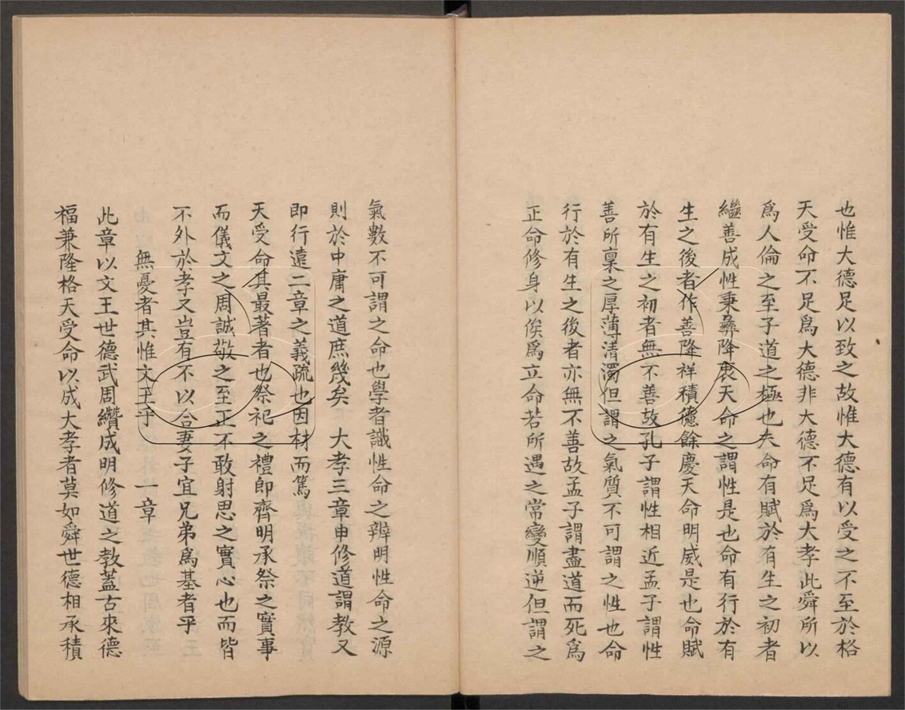 也惟大德足以致之故惟大德有以受之不至於格
天受命不足爲大德非大德不足爲大孝此舜所以
爲人倫之至子道之極也夫命有賦於有生之初者
繼善成性秉彝降衷天命之謂性是也命有行於有
生之後者作善降祥積德餘慶天命明威是也命賦
於有生之初者無不善故孔子謂性相近孟子謂性
善所稟之厚薄清濁但謂之氣質不可謂之性也命
行於有生之後者亦無不善故孟子謂盡道而死爲
正命修身以俟爲立命若所遇之常變順逆但謂之
氣數不可謂之命也學者識性命之辨明性命之源
則於中庸之道庶幾矣 大孝三章申修道謂教又
即行遠二章之義疏也因材而篤
天受命其最著者也祭祀之禮即齊明承祭之實事
而儀文之周誠敬之至正不敢射思之實心也而皆
不外於孝又豈有不以合妻子宜兄弟爲基者乎
無憂者其惟文王乎 一章
此章以文王世德武周纘成明修道之教蓋古來德
福兼隆格天受命以成大孝者莫如舜世德相承積